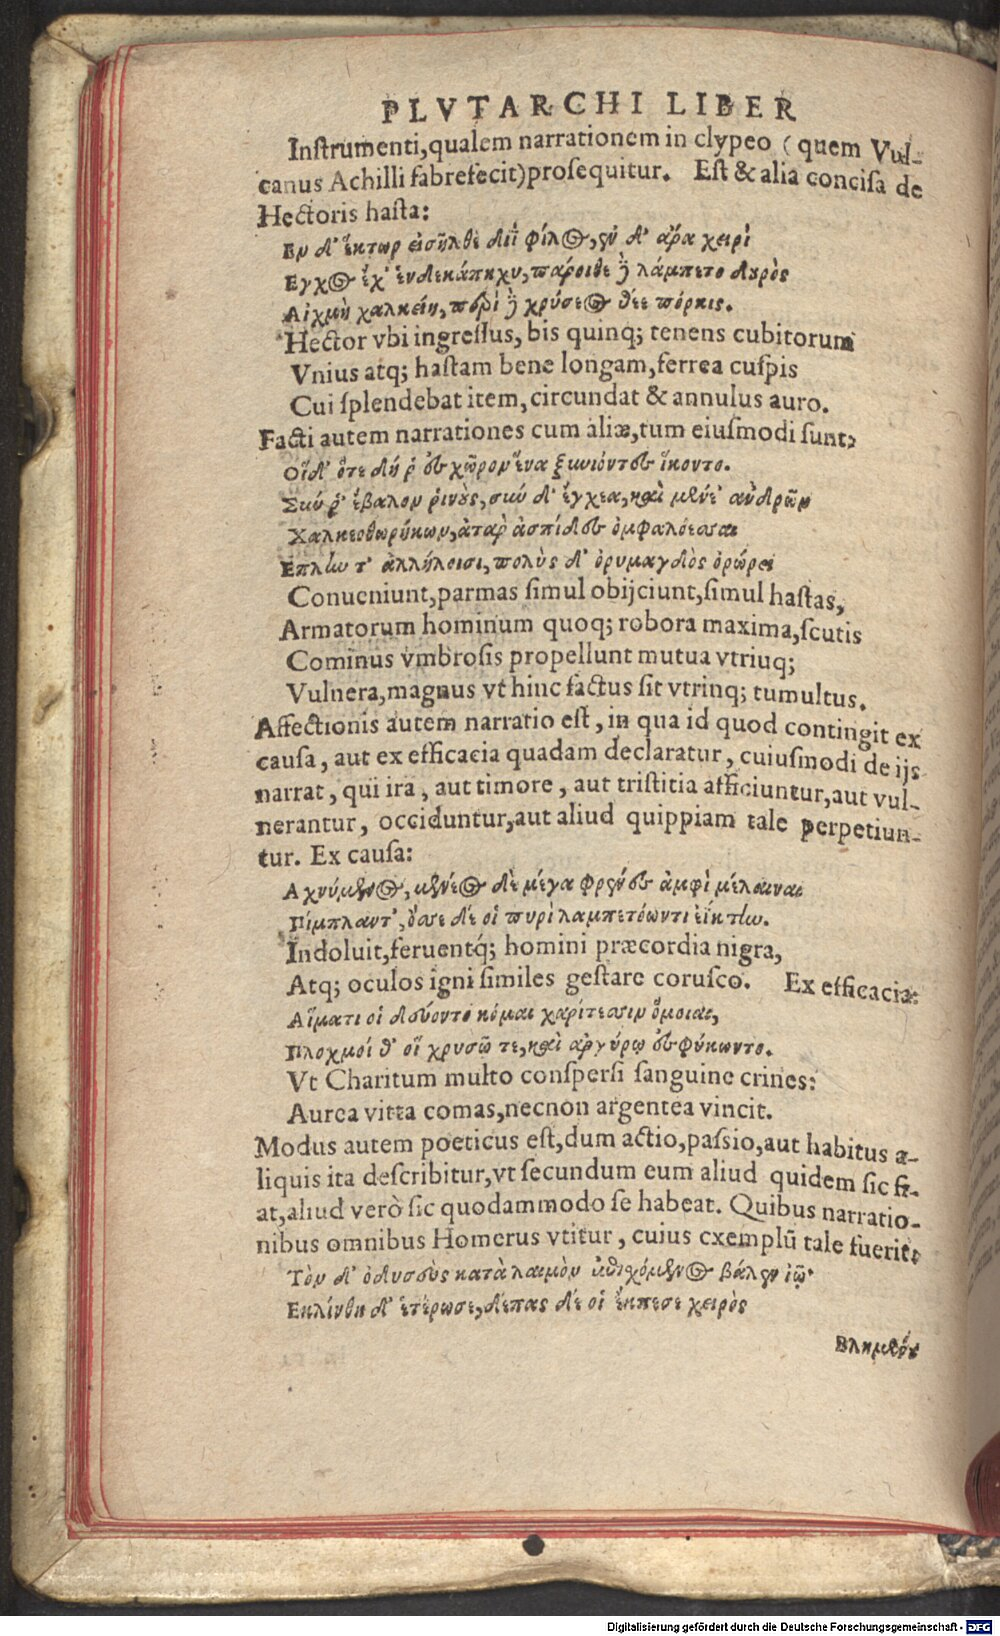 PLVTARCHI LIBER
Instrumenti,qualem narrationem in clypeo ( quem Vul-
canus Achilli fabrefecit)prosequitur. Est & alia concisa de
Hectoris hasta:
Εν δ' ἕκτωρ εἰσῆλθε διῒ φίλος, ἐν δ' ἄρα χειρὶ
Εγχος ἔχ' ἑνδεκάπηχυ, πάροιθε ἢ λάμπετο δουρὸς
Αἰχμὴ χαλκείη, περὶ ἢ χρύσεος θέε πόρκις.
Hector vbi ingressus, bis quinq; tenens cubitorum
Vnius atq; hastam bene longam,ferrea cuspis
Cui splendebat item, circundat & annulus auro.
Facti autem narrationes cum aliæ,tum eiusmodi sunt:
Οἵ δ' ὅτε δή ῥ' ἐς χῶρον ἕνα ξυνιόντες ἵκοντο.
Σύν ῥ' ἔβαλον ῥινοὺς, σὺν δ' ἔγχεα, καὶ μένε' ἀνδρῶν
Χαλκεοθωρήκων, ἀτὰρ ἀσπίδες ὀμφαλόεσσαι
Επλήντ' ἀλλήλεισι, πολὺς δ' ὀρυμαγδὸς ὀρώρει
Conueniunt,parmas simul obijciunt,simul hastas,
Armatorum hominum quoq; robora maxima,scutis
Cominus vmbrosis propellunt mutua vtriuq;
Vulnera,magnus vt hinc factus sit vtrinq; tumultus.
Affectionis autem narratio est, in qua id quod contingit ex
causa, aut ex efficacia quadam declaratur, cuiusmodi de ijs
narrat, qui ira, aut timore, aut tristitia afficiuntur,aut vul-
nerantur, occiduntur,aut aliud quippiam tale perpetiun-
tur. Ex causa:
Αχνύμενος, μένεος δὲ μέγα φρένες ἀμφὶ μέλαιναι
Πίμπλαντ', ὄσσε δέ οἱ πυρὶ λαμπετόωντι ἐΐκτην.
Indoluit,feruentq́; homini præcordia nigra,
Atq; oculos igni similes gestare corusco. Ex efficacia:
Αἵματι οἱ δεύοντο κόμαι χαρίτεσσιν ὅμοιαι,
Πλοχμοί θ' οἳ χρυσῶ τε, καὶ ἀργύρῳ ἐσφύκωντο.
Vt Charitum multo conspersi sanguine crines:
Aurea vitta comas,necnon argentea vincit.
Modus autem poeticus est,dum actio,passio,aut habitus a-
liquis ita describitur,vt secundum eum aliud quidem sic fi-
at,aliud verò sic quodammodo se habeat. Quibus narratio-
nibus omnibus Homerus vtitur, cuius exemplũ tale fuerit:
Τὸν δ' ὀδυσσεὺς κατὰ λαιμὸν ἐπισχόμενος βάλεν ἰῷ
Εκλίνθη δ' ἑτέρωσε, δέπας δέ οἱ ἔκπεσε χειρὸς
Βλημένου
Digitalisierung gefördert durch die Deutsche Forschungsgemeinschaft - DFG